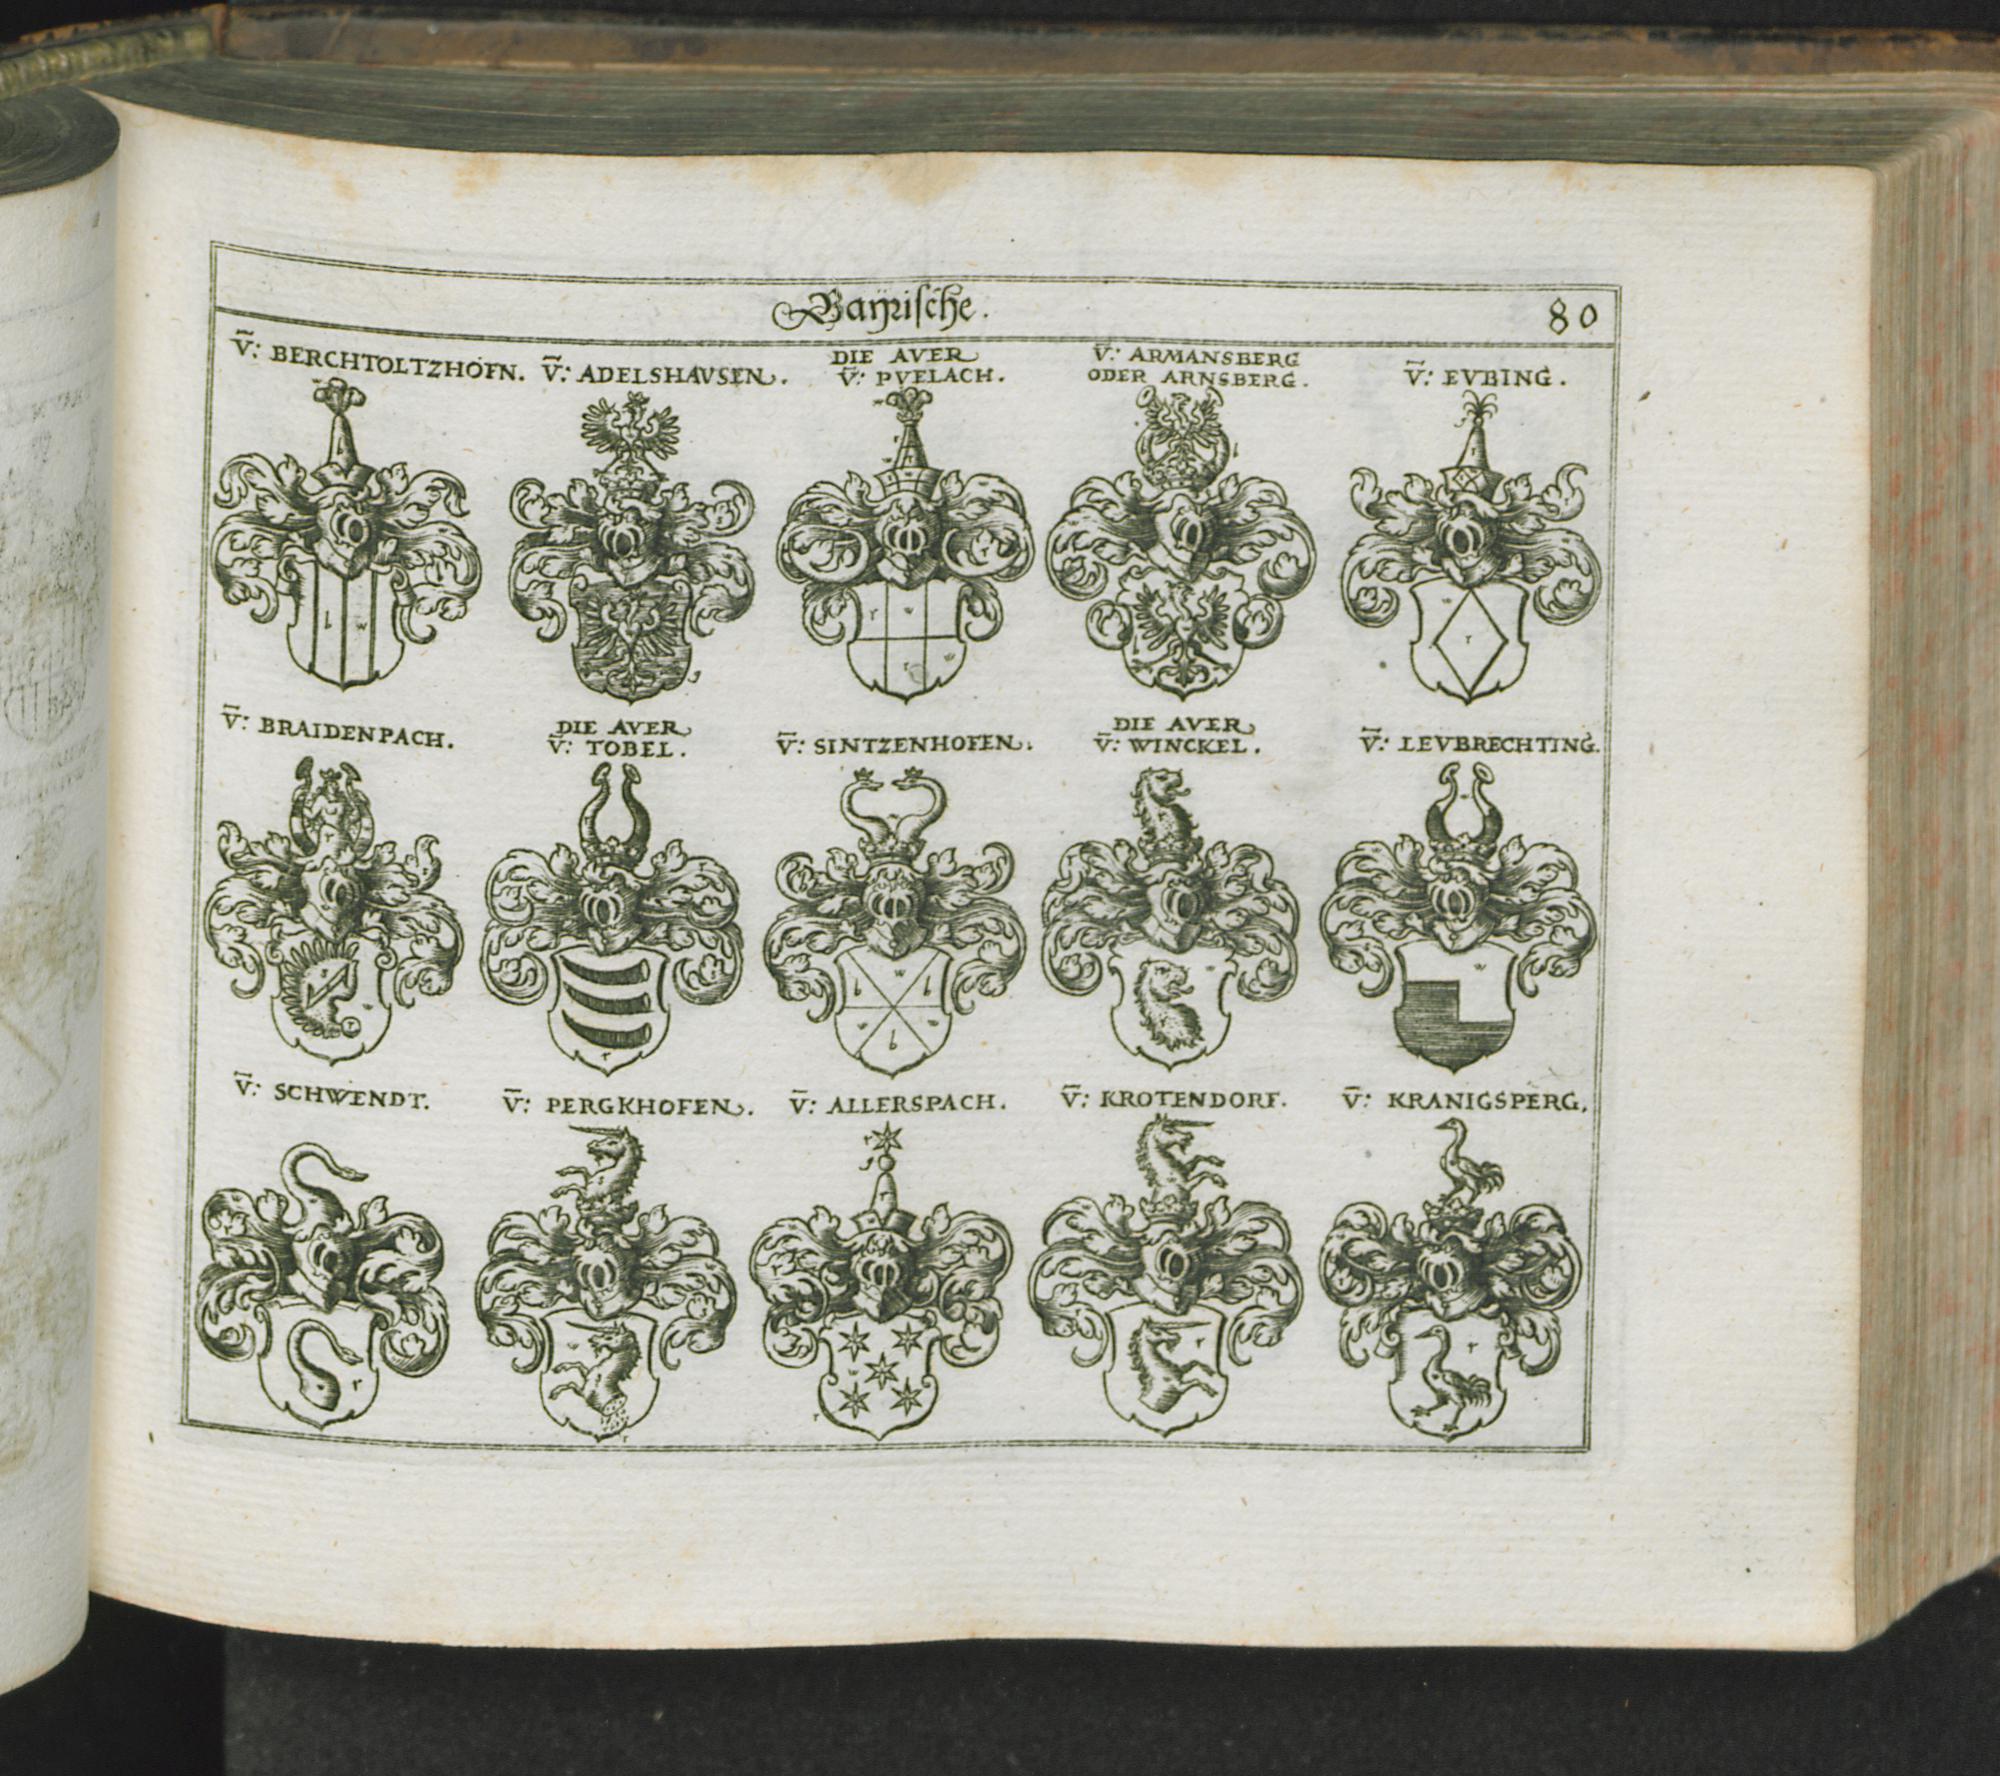 Bayrische.
80
V̄: BERCHTOLTZHOFN.
V̄: ADELSHAVSEN.
DIE AVER
V̄: PVELACH.
V̄: ARMANSBERG
ODER ARNSBERG.
V̄: EVBING.
V̄: BRAIDENPACH.
DIE AVER
V̄: TOBEL.
V̄: SINTZENHOFEN.
DIE AVER
V̄: WINCKEL.
V̄: LEVBRECHTING.
V̄: SCHWENDT.
V̄: PERGKHOFEN.
V̄: ALLERSPACH.
V̄: KROTENDORF.
V̄: KRANIGSPERG.